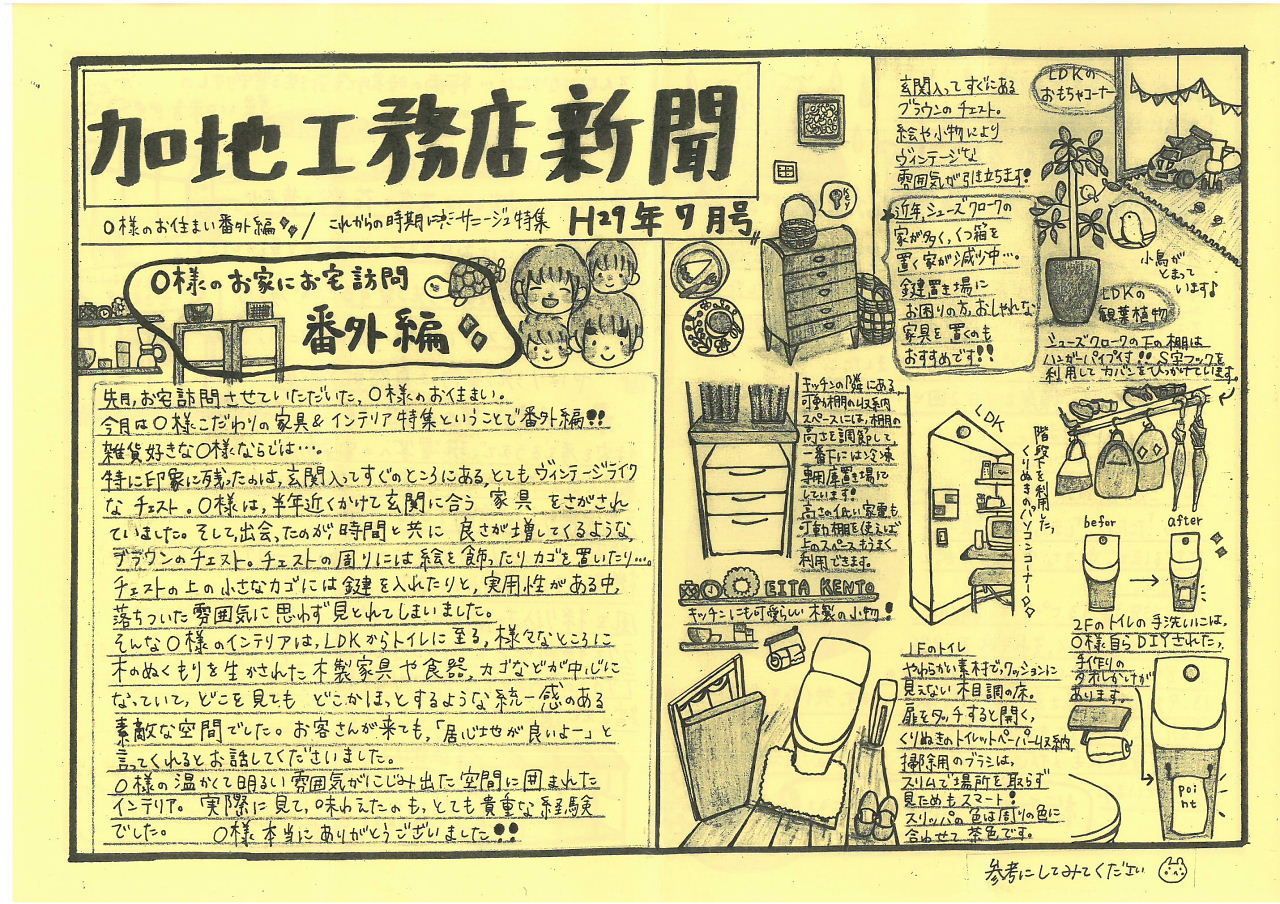 加地工務店新聞
O様のお住まい番外編 / これからの時期に サニージュ特集 H29年7月号
O様のお家にお宅訪問
番外編
先月、お宅訪問させていただいた、O様のお住まい。
今月はO様こだわりの家具&インテリア特集ということで番外編!!
雑貨好きなO様ならでは…。
特に印象に残ったのは、玄関入ってすぐのところにある、とてもヴィンテージライク
なチェスト。O様は、半年近くかけて玄関に合う家具をさがされ
ていました。そして、出会ったのが時間と共に良さが増してくるような、
ブラウンのチェスト。チェストの周りには絵を飾ったりカゴを置いたり…。
チェストの上の小さなカゴには鍵を入れたりと、実用性がある中、
落ちついた雰囲気に思わず見とれてしまいました。
そんなO様のインテリアは、LDKからトイレに至る、様々なところに
木のぬくもりを生かされた木製家具や食器、カゴなどが中心に
なっていて、どこを見てもどこかほっとするような統一感のある
素敵な空間でした。お客さんが来ても、「居心地が良いよー」と
言ってくれるとお話してくださいました。
O様の温かくて明るい雰囲気がにじみ出た空間に囲まれた
インテリア。実際に見て、味わえたのも、とても貴重な経験
でした。 O様本当にありがとうございました!!
Key
玄関入ってすぐにある
ブラウンのチェスト。
絵や小物により
ヴィンテージな
雰囲気が引き立ちます!
近年、シューズクロークの
家が多く、くつ箱を
置く家が減少中…。
鍵置き場に
お困りの方、おしゃれな
家具を置くのも
おすすめです!!
LDKの
おもちゃコーナー
小鳥が
とまって
います♪
LDKの
観葉植物
シューズクロークの下の棚は
ハンガーパイプ付!! S字フックを
利用してカバンをひっかけています。
キッチンの隣にある、
可動棚の収納
スペースには、棚の
高さを調節して、
一番下には冷凍
専用庫置き場に
しています!
高さの低い家電も
可動棚を使えば
上のスペースもうまく
利用できます。
LDK
階段下を利用した、
くりぬきのパソコンコーナー
EITA KENTO
キッチンにも可愛らしい木製の小物!
befor
after
2Fのトイレの手洗いには、
O様自らDIYされた、
手作りの
タオルかけが
あります。
1Fのトイレ
やわらかい素材で、クッションに
見えない木目調の床。
扉をタッチすると開く、
くりぬきのトイレットペーパー収納。
掃除用のブラシは、
スリムで場所を取らず
見ためもスマート!
スリッパの色は周りの色に
合わせて茶色です。
poi
nt
参考にしてみてください